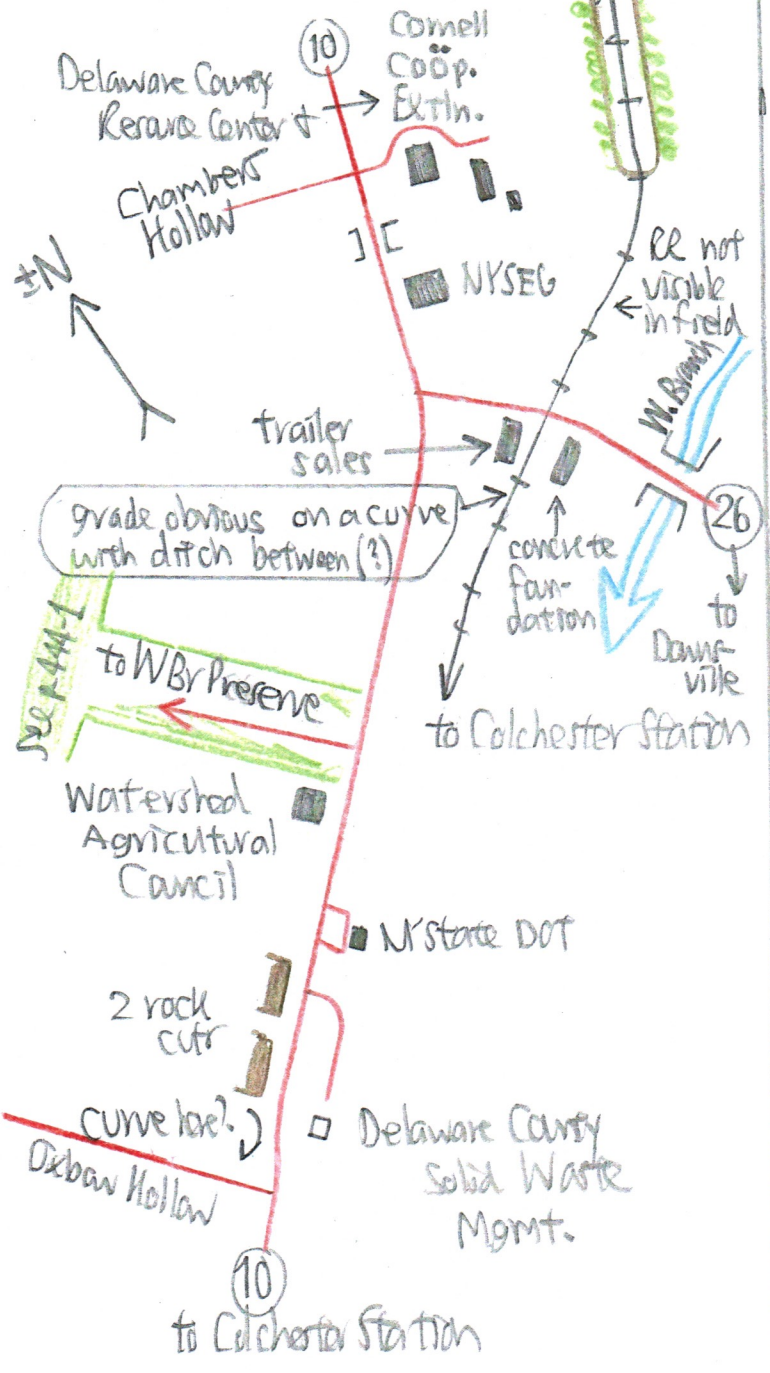 10
Cornell
Coöp.
Extln.
Delaware County
Resource Center &
Chambers
Hollow
±N
NYSEG
RR not
visible
in field
W. Branch
trailer
sales
26
grade obvious on a curve
with ditch between (?)
concrete
foun-
dation
to
Downs-
ville
see p. 444-1
to W Br Preserve
to Colchester Station
Watershed
Agricultural
Council
NY State DOT
2 rock
cuts
curve here?
Delaware County
Solid Waste
Mgmt.
Oxbow Hollow
10
to Colchester Station